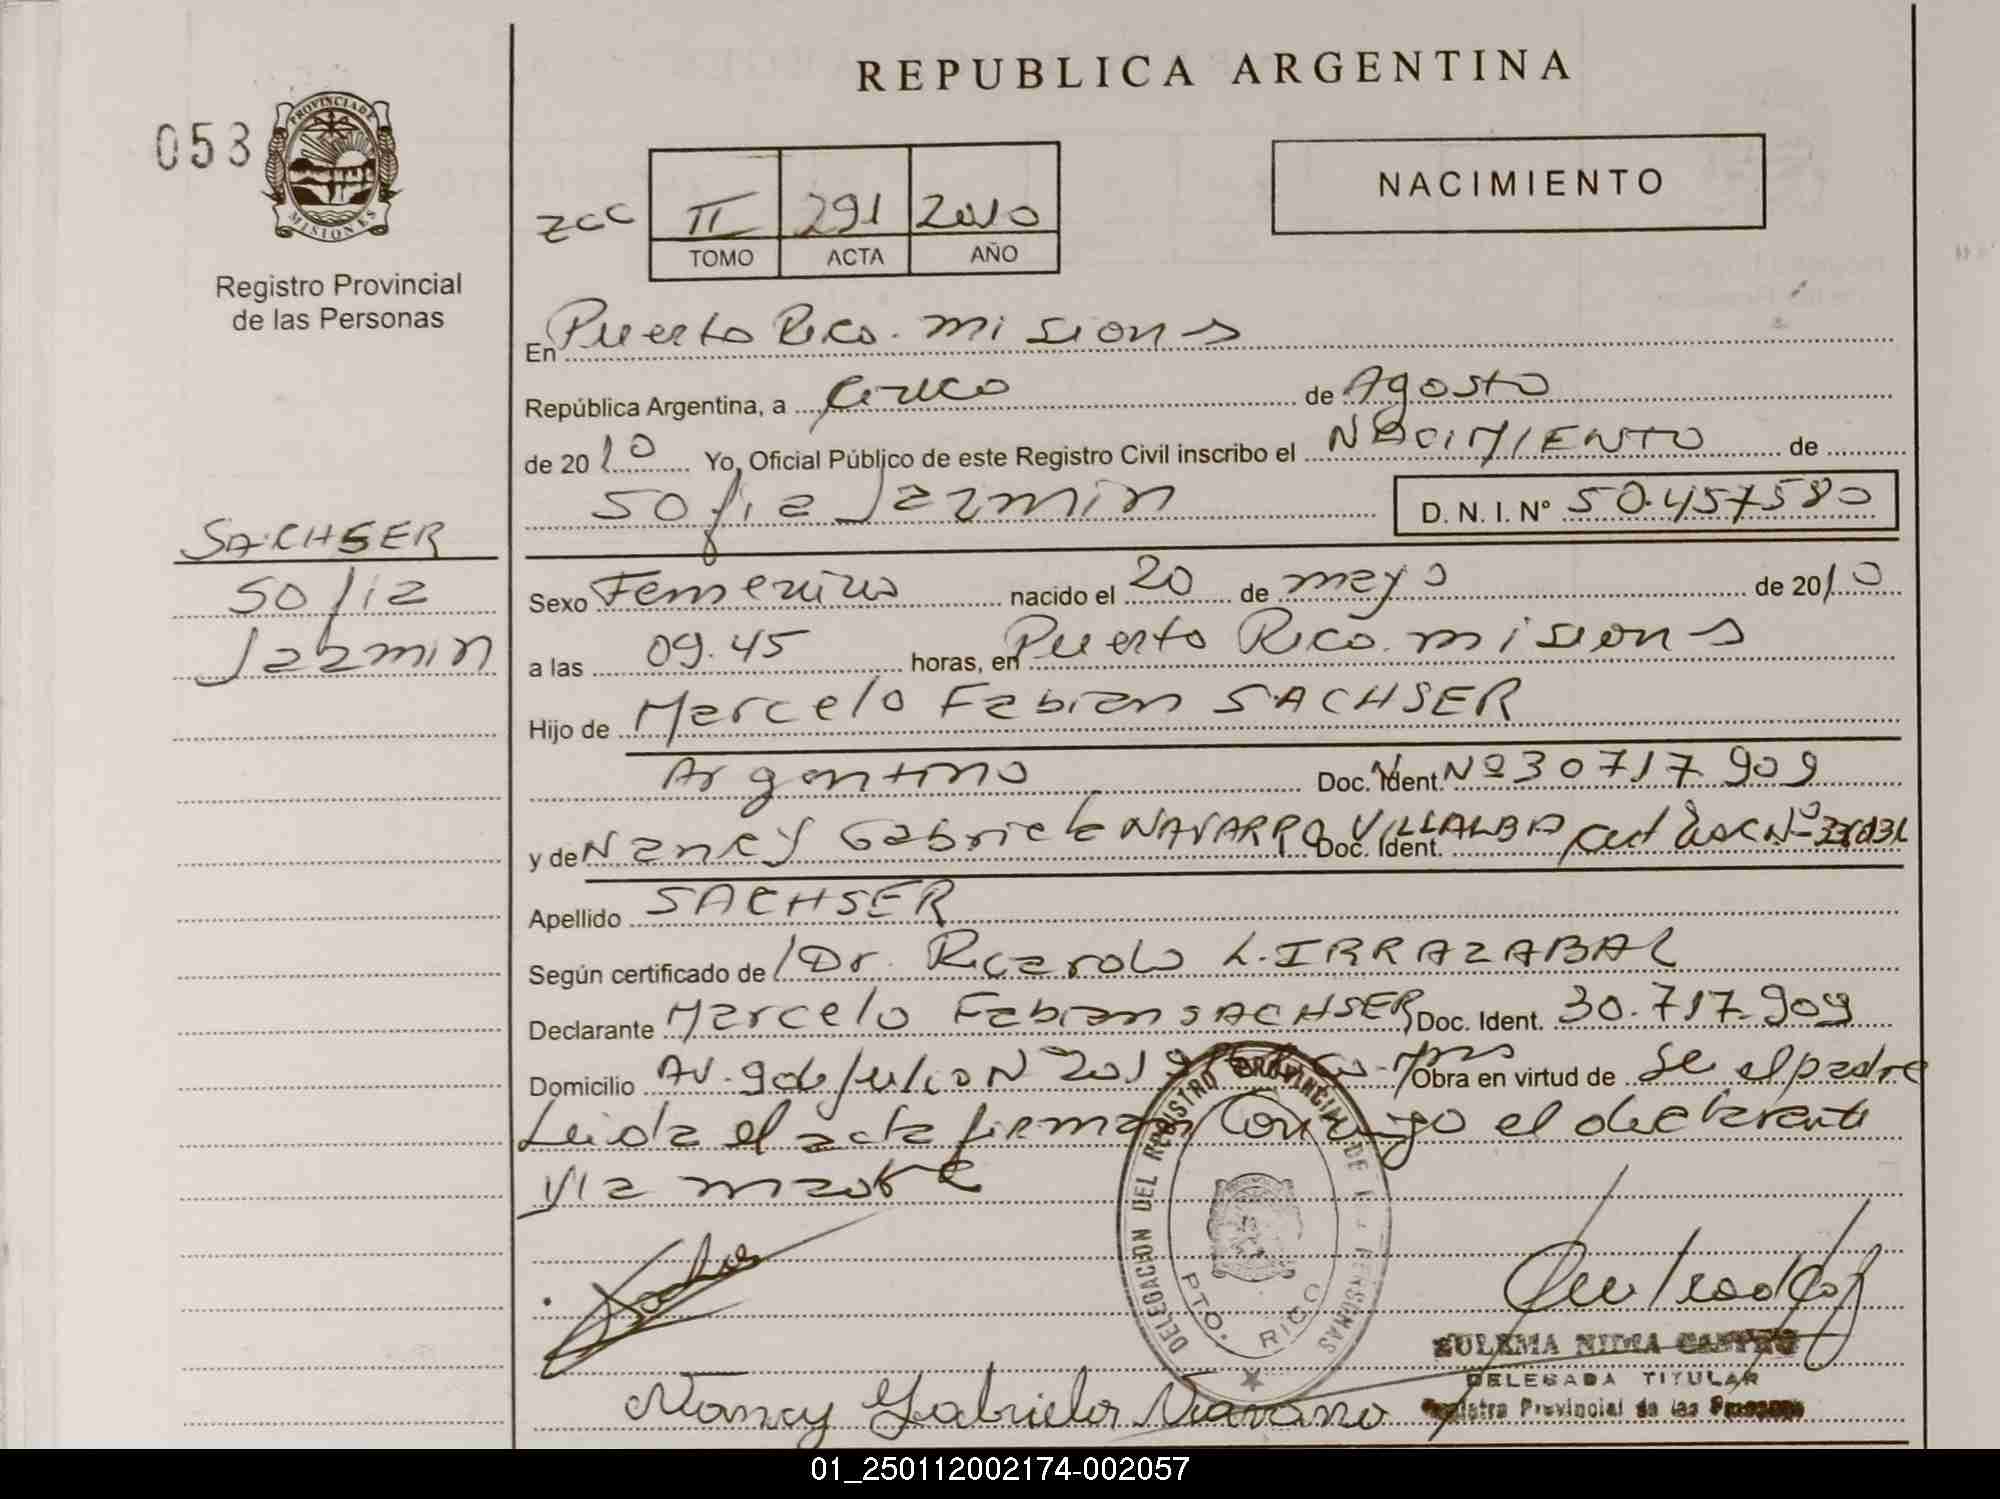 REPUBLICA ARGENTINA
053
PROVINCIA DE MISIONES
Registro Provincial
de las Personas
NACIMIENTO
zcc II 291 2010
TOMO ACTA AÑO
En Puerto Rico. misions
República Argentina, a cinco de Agosto
de 2010 Yo, Oficial Público de este Registro Civil inscribo el NACIMIENTO de
Sofia Jazmin D. N. I. N° 50.457580
SACHSER
Sofia
Jazmin
Sexo Femenino nacido el 20 de mayo de 2010
a las 09.45 horas, en Puerto Rico. misions
Hijo de Marcelo Fabian SACHSER
Argentino Doc. Ident. Nº 30 717 909
y de Nancy Gabriela NAVARRO VILLALBA Doc. Ident.
Apellido SACHSER
Según certificado de Dr. Ricardo L. IRRAZABAL
Declarante Marcelo Fabian SACHSER Doc. Ident. 30.717.909
Domicilio AV. 9 de Julio N 2019 Obra en virtud de Se el padre
Leida el acta firman Conmigo el declarante
y la madre
DELEGACION DEL REGISTRO PROVINCIAL DE LAS PERSONAS
PTO. RICO
ZULEMA NIDIA CASTRO
DELEGADA TITULAR
Registro Provincial de las Personas
Nancy Gabriela Navarro
01_250112002174-002057